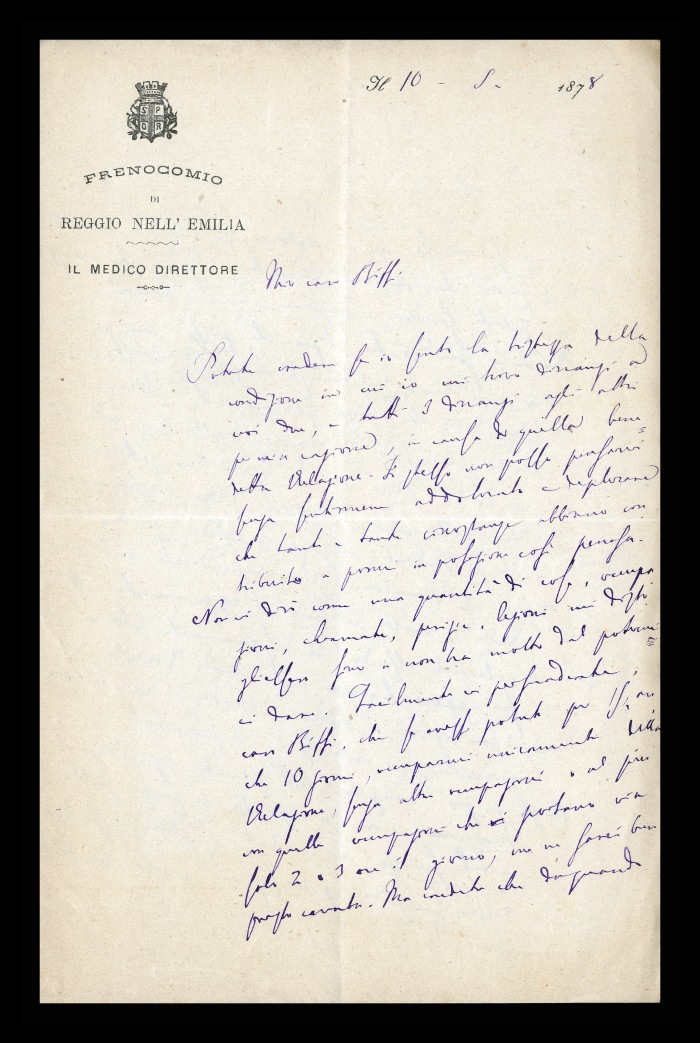 Il 10 - 5. 1878
S P
Q R
FRENOCOMIO
DI
REGGIO NELL' EMILIA
IL MEDICO DIRETTORE
Mio caro Biffi.
Potete credere se io sento la tristezza della
condizione in cui io mi trovo dinanzi a
voi due, e tutti 3 dinanzi agli altri
per mia cagione, in causa di quella bene=
detta Relazione. Io stesso non posso pensarvi
senza sentirmene addolorato e deplorare
che tante e tante circostanze abbiano con
tribuito a pormi in posizione così penosa.
Non vi dirò come una quantità di cose, occupa
zioni, chiamate, perizie, lezioni mi disto
gliessero fino a non ha molto dal potermi
ci dare. Facilmente vi persuaderete,
caro Biffi, che se avessi potuto per 15, an
che 10 giorni, occuparmi unicamente della
Relazione, senza altre occupazioni o al più
con quelle occupazioni che vi portano via
sole 2 o 3 ore il giorno, me ne sarei ben
presto cavato. Ma credete che da quando